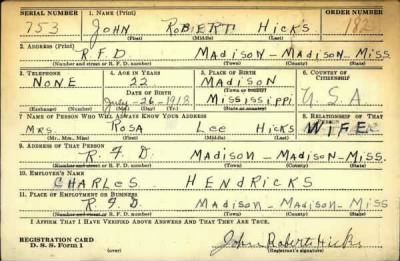 SERIAL NUMBER 1. NAME (Print) ORDER NUMBER
753 JOHN ROBERT HICKS 182
(First) (Middle) (Last)
2. ADDRESS (Print)
R.F.D MADISON-MADISON-MISS.
(Number and street or R. F. D. number) (Town) (County) (State)
3. TELEPHONE 4. AGE IN YEARS 5. PLACE OF BIRTH 6. COUNTRY OF CITIZENSHIP
NONE 22 MADISON
DATE OF BIRTH (Town or county)
July-26-1918 MISSISSIPPI U.S.A.
(Exchange) (Number) (Mo.) (Day) (Yr.) (State or country)
7. NAME OF PERSON WHO WILL ALWAYS KNOW YOUR ADDRESS 8. RELATIONSHIP OF THAT
MRS. ROSA LEE HICKS WIFE
(Mr., Mrs., Miss) (First) (Middle) (Last)
9. ADDRESS OF THAT PERSON
R.F.D. MADISON-MADISON-MISS.
(Number and street or R. F. D. number) (Town) (County) (State)
10. EMPLOYER'S NAME
CHARLES HENDRICKS
11. PLACE OF EMPLOYMENT OR BUSINESS
R.F.D. MADISON-MADISON-MISS
(Number and street or R. F. D. number) (Town) (County) (State)
I AFFIRM THAT I HAVE VERIFIED ABOVE ANSWERS AND THAT THEY ARE TRUE.
REGISTRATION CARD
D. S. S. FORM 1 (over) John Robert Hicks
(Registrant's signature)